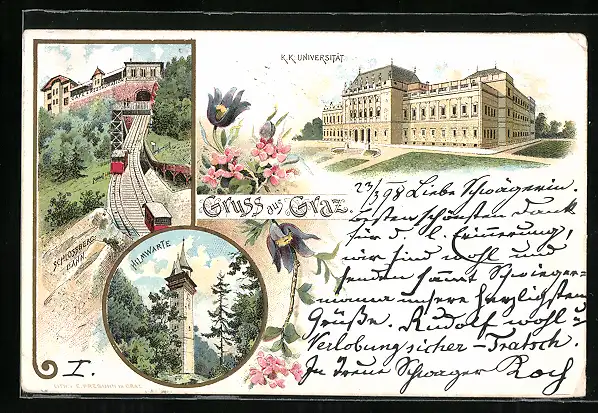 K.K. UNIVERSITÄT
Gruss aus Graz.
SCHLOSSBERG-
BAHN.
HILMWARTE
23/3 98 Liebe Schwägerin.
Besten schönsten Dank
für d. l. Erinnerung,
wir sind wohl und
senden sammt Schwieger-
mama unsere herzlichsten
Grüße. Rudolf wohl u
Verlobung sicher-Tratsch.
In Treue Schwager
I.
LITH. v. GRAZ